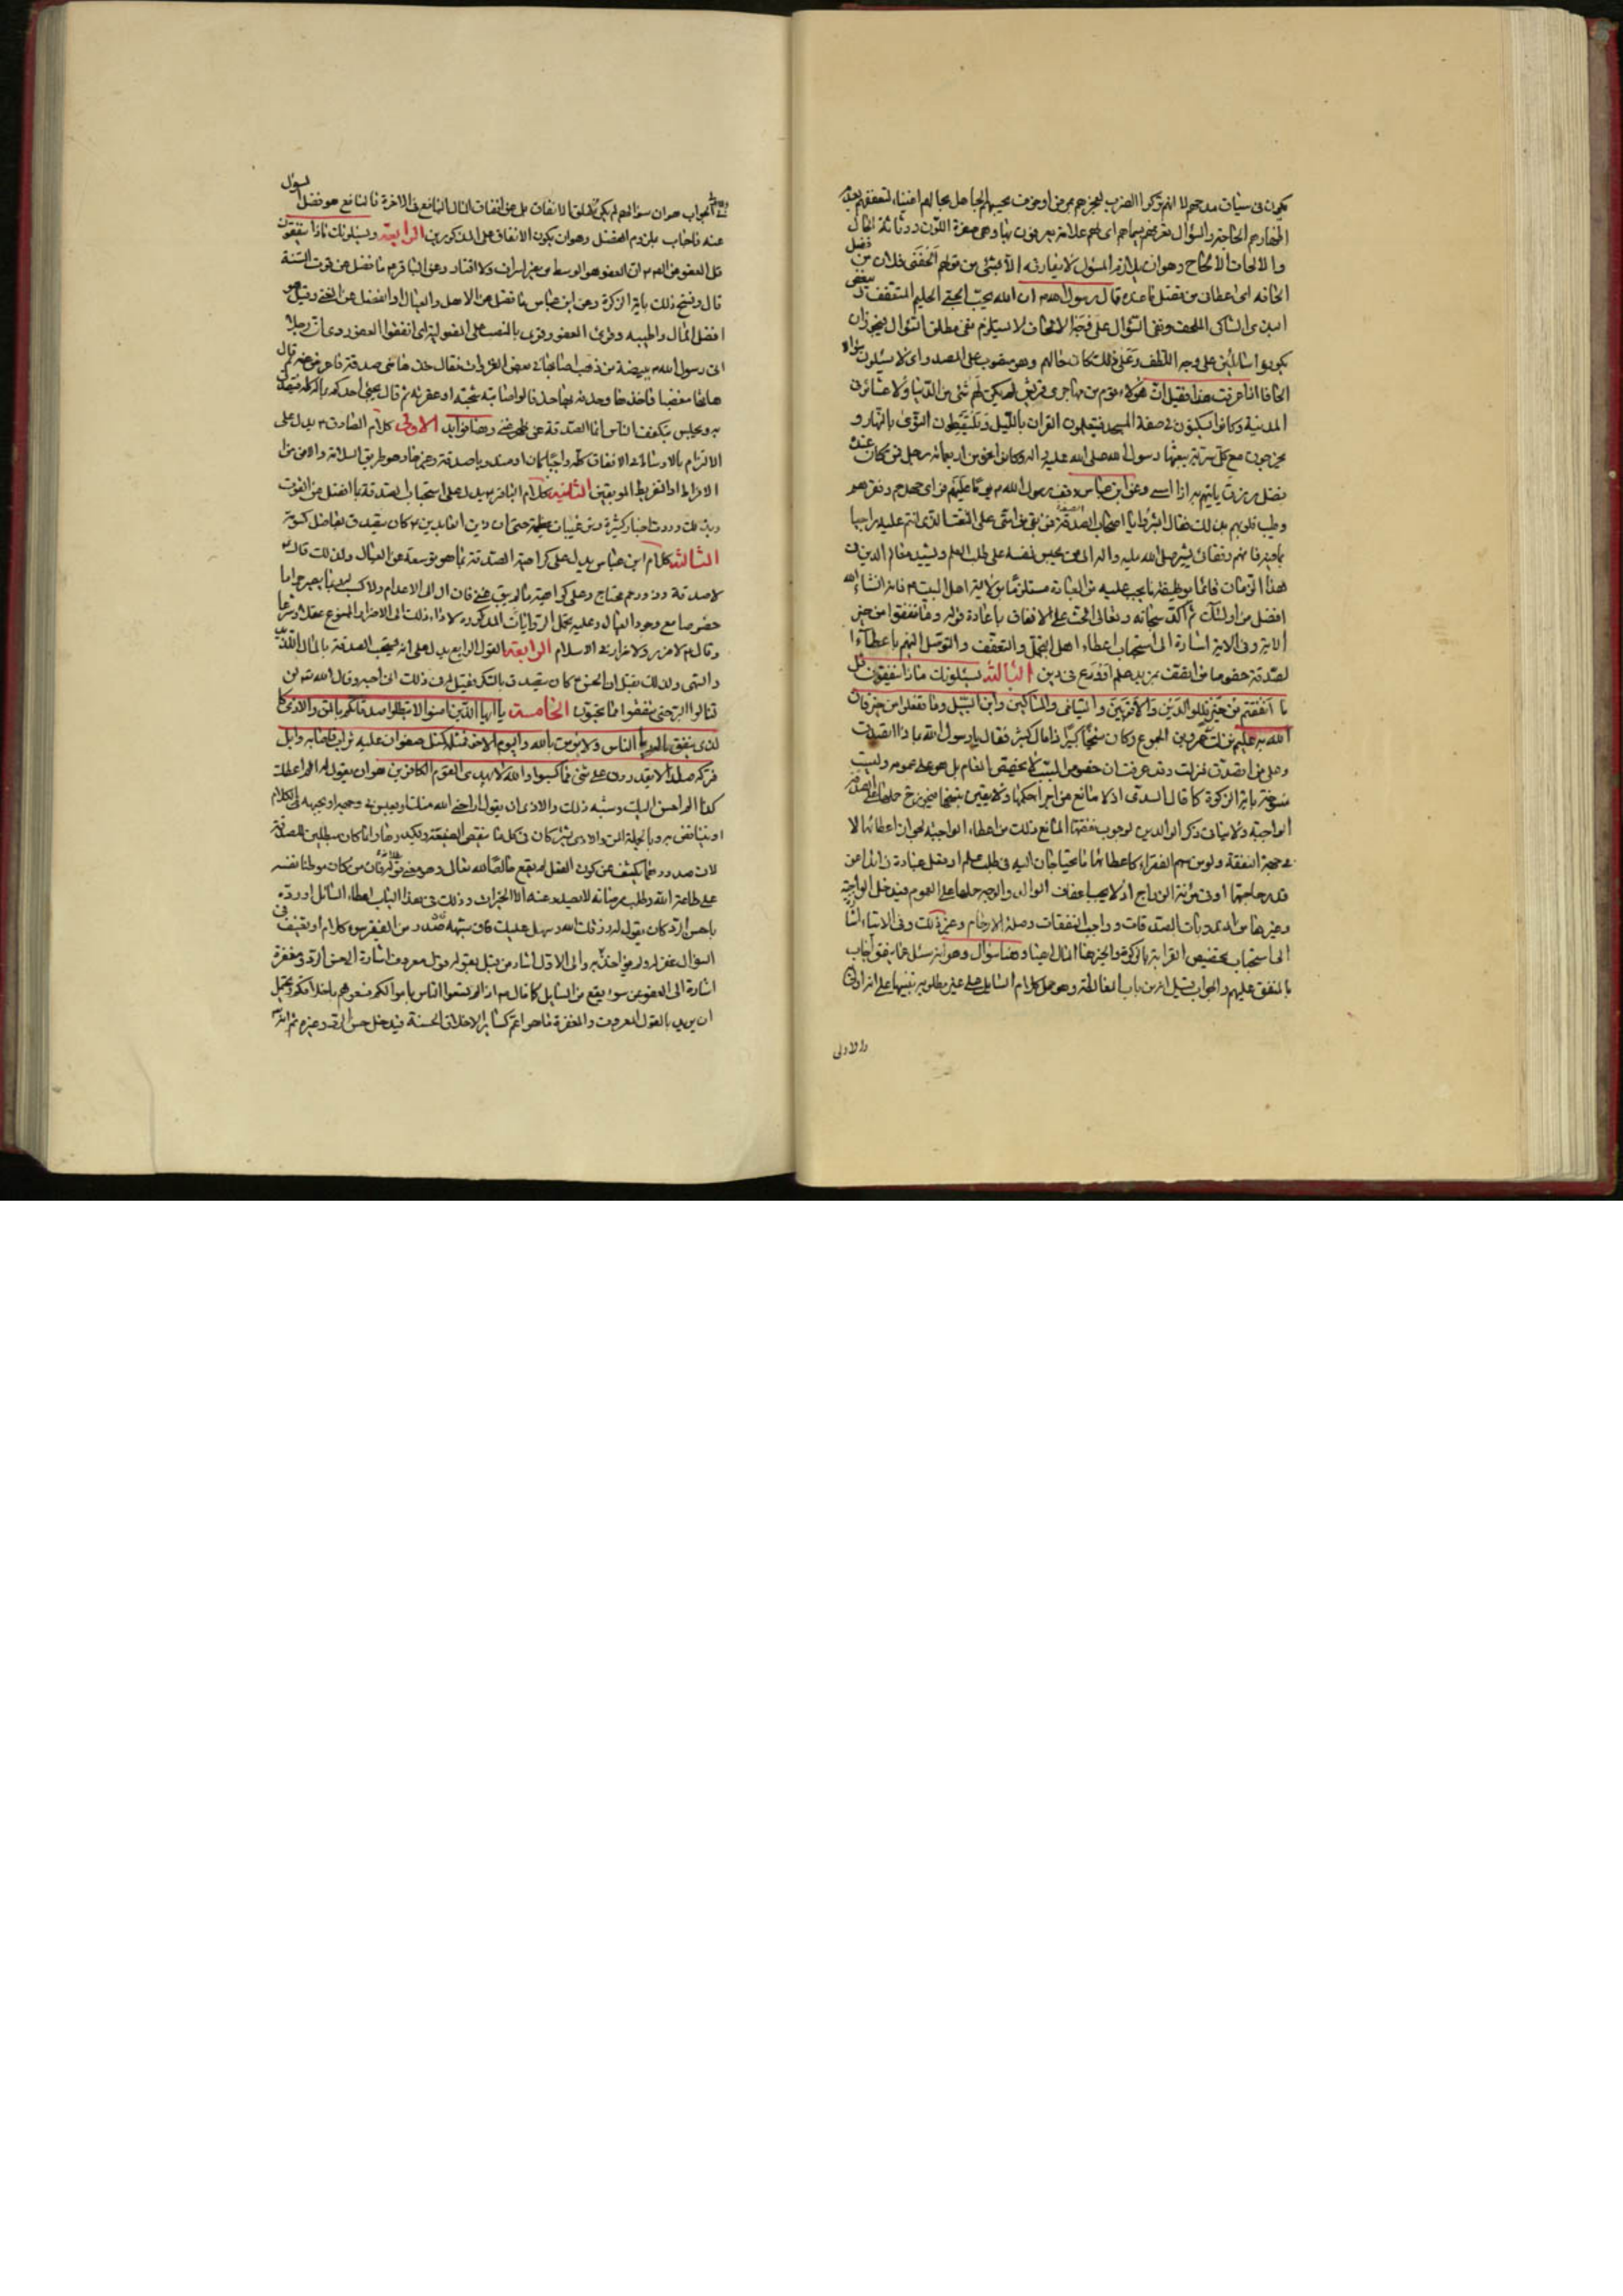 يكون فى سياق مدحهم لا انهم تركوا الضرب لعجزهم بمرض او خوف يحسبهم الجاهل بحالهم اغنياء لتعففهم
اظهارهم الحاجة والسؤال تعرفهم بسيماهم اى لهم علامة يعرفون بها وهى صفرة اللون ورثاثة الحال
والالحاف الالحاح وهو ان يلازم المسؤل لا يفارقه الا بشئ من قولهم الحفنى فلان من فضل
لحافه اى اعطانى من فضل ما عنده قال رسول الله ان الله يحب الحيى الحليم المتعفف ويبغض
البذى الشاكى الملحف ونفى السؤال على وجه الالحاف لا يستلزم نفى مطلق السؤال فيجوز ان
يكونوا سائلين على وجه التلطف وعلى ذلك كان حالهم وهو منصوب على المصدر اى لا يسئلون سؤال
الحافا اذا عرفت هذا فقيل ان هؤلاء قوم من مهاجرى قريش لم يكن لهم شئ من الدنيا ولا عشائر فى
المدينة وكانوا يسكنون فى صفة المسجد فيتعلمون القران بالليل ويلتقطون النوى بالنهار و
يخرجون مع كل سرية يبعثها رسول الله صلى الله عليه واله وكانوا نحوا من اربعمائة رجل فمن كان عنده
فضل من رزق ياتيهم به اذا امسى وعن ابن عباس وقف رسول الله يوما عليهم فراى جهدهم وفقرهم
وطيب قلوبهم بذلك فقال ابشروا يا اصحاب الصفة فمن بقى من امتى على النعت الذى انتم عليه راضيا
بما فيه فانهم رفقائى
هذا الزمان قائما بوظيفة ما يجب عليه من العبادة مستلزما بولاية اهل البيت فانه انشاء الله
افضل من اولئك ثم اكد سبحانه وتعالى الحث على الانفاق باعادة قوله وما تنفقوا من خير
الاية وفى الاية اشارة الى استحباب اعطاء اهل التجمل والتعفف والتوصل اليهم باعطاء
الصدقة خصوصا من اتصف بمزيد علم او ورع فى دين الثالثة يسئلونك ماذا ينفقون قل
ما انفقتم من خير فللوالدين والاقربين واليتامى والمساكين وابن السبيل وما تفعلوا من خير فان
الله به عليم نزلت فى عمرو بن الجموح وكان شيخا كبيرا ذا مال كثير فقال يا رسول الله بماذا اتصدق
وعلى من اتصدق فنزلت وقد عرفت ان خصوص السبب لا يخصص العام بل هو على عمومه وليست
منسوخة باية الزكوة كما قال السدى اذ لا مانع من اجراء حكمها ولا يقين بنسخها
الواجبة ولا ينافى ذكر الوالدين لوجوب نفقتهما المانع ذلك من اعطاء الواجبة لجواز اعطائهما لا
من جهة النفقة ولو من سهم الفقراء كاعطائهما ما يحتاجان اليه فى طلب علم او فعل عبادة زائدا عن
قدر حاجتهما او فى مؤنة الزواج اذ لا يجب اعفاف الوالد والوجه حملها على العموم فيدخل الواجبة
وغيرها من المندوبات الصدقات وواجب النفقات وصلة الارحام وغير ذلك وفى الاية اشارة
الى استحباب تخصيص القرابة بالزكوة وغيرها المال وهنا سؤال وهو انه سئل عما ينفق اجاب
بالمنفق عليهم والجواب قيل انه من باب المغالطة وهو حمل كلام السائل على غير مطلوبه تنبيها على انه اولى
والاولى
الجواب هو ان سؤالهم لم يكن مطلق الانفاق بل عن انفاق المال النافع فى الاخرة فالنافع هو فضل المسؤل
عنه فاجاب بلزوم الفضل وهو ان يكون الانفاق على المذكورين الرابعة ويسئلونك ماذا ينفقون
قل العفو عن الصادق ان العفو هو الوسط من غير اسراف ولا اقتار وعن الباقر ما فضل عن قوت السنة
قال ونسخ ذلك باية الزكوة وعن ابن عباس ما فضل عن الاهل والعيال او الفضل عن الغنى وقيل هو
افضل المال واطيبه وقرئ العفو بالنصب على المفعولية اى انفقوا العفو روى ان رجلا
اتى رسول الله ببيضة من ذهب اصابها فى بعض الغزوات فقال خذها منى صدقة فاعرض عنه ثم قال
هاتها مغضبا فاخذها وحذفه بها حذفا لو اصابه لشجه او عقره ثم قال يجئ احدكم بماله كله يتصدق
به ويجلس يتكفف الناس انما الصدقة عن ظهر غنى وهنا فوايد الاولى كلام الصادق يدل على
الالتزام بالاوساط فى الانفاق كله واجبا كان او مندوبا صدقة وغيرها وهو طريق السلامة والامن من
الافراط او التفريط الموبقين الثانية كلام الباقر يدل على استحباب الصدقة بما افضل عن القوت
وبذلك وردت اخبار كثيرة حتى ان زين العابدين كان يتصدق بفاضل كسوته
الثالثة كلام ابن عباس يدل على كراهية الصدقة بما هو توسعة عن العيال ولذلك قال
لا صدقة وذو رحم محتاج وعلى كراهية ما لم يبق غنى
خصوصا مع وجود العيال وعليه يحمل الروايات المذكورة لاداء ذلك الى الاضرار الممنوع عقلا وشرعا
وقال لا ضرر ولا ضرار فى الاسلام الرابعة القول الرابع يدل على انه يستحب الصدقة بالمال اللذيذ
والشهى ولذلك نقل ان الحسن كان يتصدق بالسكر فقيل له فى ذلك انى احبه وقال الله لن
تنالوا البر حتى تنفقوا مما تحبون الخامسة يا ايها الذين امنوا لا تبطلوا صدقاتكم بالمن والاذى كا
لذى ينفق ماله رئاء الناس ولا يؤمن بالله واليوم الاخر فمثله كمثل صفوان عليه تراب فاصابه وابل
فتركه صلدا لا يقدرون على شئ مما كسبوا والله لا يهدى القوم الكافرين هو ان يقول له الم اعطك
كذا الم احسن اليك وشبه ذلك والاذى ان يقول اراحنى الله منك او يعبس فى وجهه او يجبهه فى الكلام
او ينتقص به وبالجملة المن والاذى يشتركان فى كل ما ينقص الصنيعة ويكدرها وانما كان مبطلين للصدقة
لان صدورهما يكشف عن كون الفعل لم يقع خالصا لله تعالى وهو معنى بطلانه فان من كان موطنا نفسه
على طاعة الله وطلب مرضاته لا يصدر عنه الا الخيرات وذلك فى هذا الباب اعطاء السائل او رده
باحسن الرد كان يقول له رزقك الله وسهل عليك فان سبقه صدور من الفقير سوء كلام او تعنيف فى
السؤال عفى له ولم يؤاخذه به والى الاول اشار من قبل بقوله قول معروف اشارة الى حسن الرد ومغفرة
اشارة الى العفو عن سوء يقع من السايل كما قال اذا لم يسعوا الناس باموالكم فسعوهم باخلاقكم ويحتمل
ان يريد بالقول المعروف والمغفرة ما هو اعم كساير الاخلاق الحسنة فيدخل حسن الرد وغيره ثم انه